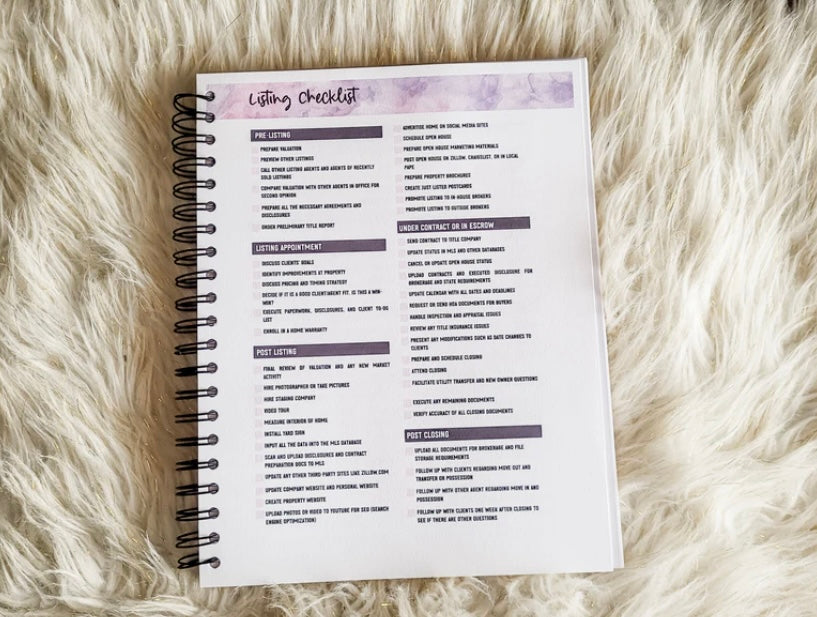 Listing Checklist
PRE-LISTING
PREPARE VALUATION
PREVIEW OTHER LISTINGS
CALL OTHER LISTING AGENTS AND AGENTS OF RECENTLY
SOLD LISTINGS
COMPARE VALUATION WITH OTHER AGENTS IN OFFICE FOR
SECOND OPINION
PREPARE ALL THE NECESSARY AGREEMENTS AND
DISCLOSURES
ORDER PRELIMINARY TITLE REPORT
LISTING APPOINTMENT
DISCUSS CLIENTS' GOALS
IDENTIFY IMPROVEMENTS AT PROPERTY
DISCUSS PRICING AND TIMING STRATEGY
DECIDE IF IT IS A GOOD CLIENT/AGENT FIT. IS THIS A WIN-
WIN?
EXECUTE PAPERWORK, DISCLOSURES, AND CLIENT TO-DO
LIST
ENROLL IN A HOME WARRANTY
POST LISTING
FINAL REVIEW OF VALUATION AND ANY NEW MARKET
ACTIVITY
HIRE PHOTOGRAPHER OR TAKE PICTURES
HIRE STAGING COMPANY
VIDEO TOUR
MEASURE INTERIOR OF HOME
INSTALL YARD SIGN
INPUT ALL THE DATA INTO THE MLS DATABASE
SCAN AND UPLOAD DISCLOSURES AND CONTRACT
PREPARATION DOCS TO MLS
UPDATE ANY OTHER THIRD-PARTY SITES LIKE ZILLOW.COM
UPDATE COMPANY WEBSITE AND PERSONAL WEBSITE
CREATE PROPERTY WEBSITE
UPLOAD PHOTOS OR VIDEO TO YOUTUBE FOR SEO (SEARCH
ENGINE OPTIMIZATION)
ADVERTISE HOME ON SOCIAL MEDIA SITES
SCHEDULE OPEN HOUSE
PREPARE OPEN HOUSE MARKETING MATERIALS
POST OPEN HOUSE ON ZILLOW, CRAIGLIST, OR IN LOCAL
PAPE
PREPARE PROPERTY BROCHURES
CREATE JUST LISTED POSTCARDS
PROMOTE LISTING TO IN-HOUSE BROKERS
PROMOTE LISTING TO OUTSIDE BROKERS
UNDER CONTRACT OR IN ESCROW
SEND CONTRACT TO TITLE COMPANY
UPDATE STATUS IN MLS AND OTHER DATABASES
CANCEL OR UPDATE OPEN HOUSE STATUS
UPLOAD CONTRACTS AND EXECUTED DISCLOSURE FOR
BROKERAGE AND STATE REQUIREMENTS
UPDATE CALENDAR WITH ALL DATES AND DEADLINES
REQUEST OR SEND HOA DOCUMENTS FOR BUYERS
HANDLE INSPECTION AND APPRAISAL ISSUES
REVIEW ANY TITLE INSURANCE ISSUES
PRESENT ANY MODIFICATIONS SUCH AS DATE CHANGES TO
CLIENTS
PREPARE AND SCHEDULE CLOSING
ATTEND CLOSING
FACILITATE UTILITY TRANSFER AND NEW OWNER QUESTIONS
EXECUTE ANY REMAINING DOCUMENTS
VERIFY ACCURACY OF ALL CLOSING DOCUMENTS
POST CLOSING
UPLOAD ALL DOCUMENTS FOR BROKERAGE AND FILE
STORAGE REQUIREMENTS
FOLLOW UP WITH CLIENTS REGARDING MOVE OUT AND
TRANSFER OR POSSESSION
FOLLOW UP WITH OTHER AGENT REGARDING MOVE IN AND
POSSESSION
FOLLOW UP WITH CLIENTS ONE WEEK AFTER CLOSING TO
SEE IF THERE ARE OTHER QUESTIONS